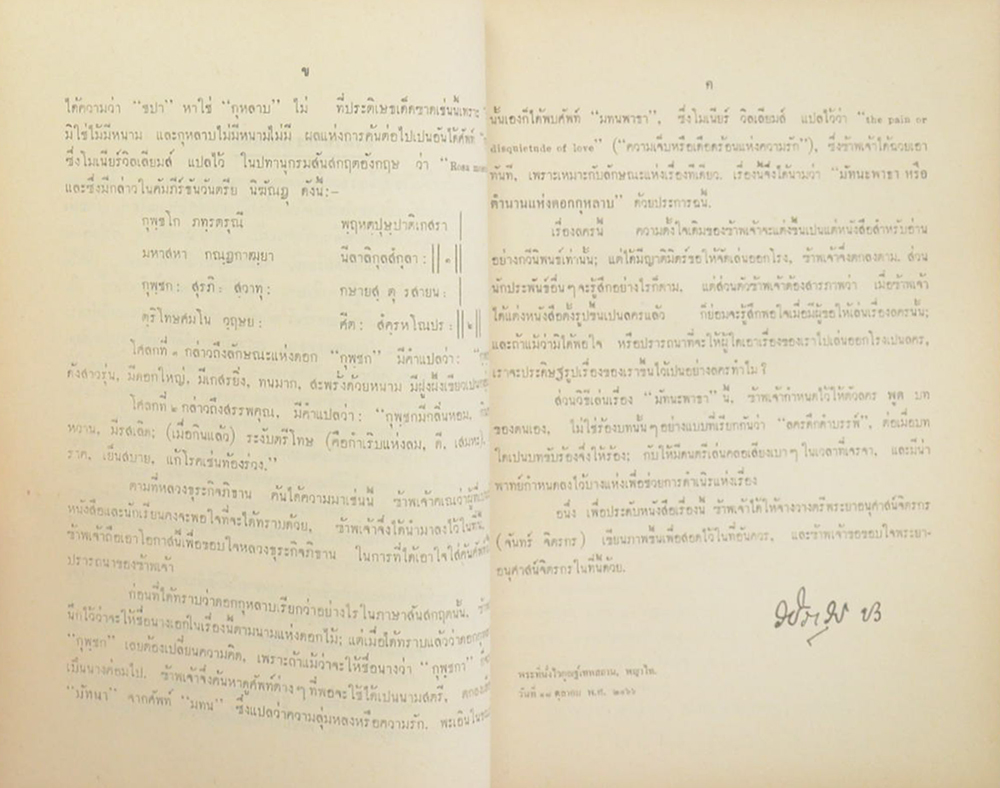 ข
ได้ความว่า "ชปา" หาใช่ "กุหลาบ" ไม่ ที่ประติเษธเด็ดขาดเช่นนี้เพราะ
มิใช่ไม้มีหนาม และกุหลาบไม่มีหนามไม่มี ผลแห่งการค้นต่อไปเป็นอันได้ศัพท์
ซึ่งโมเนียร์วิลเลียมส์ แปลไว้ ในปทานุกรมสันสกฤตอังกฤษ ว่า "Rosa
และซึ่งมีกล่าวในคัมภีร์ธันวันตรีย นิฆัณฏุ ดังนี้:–
กุพฺชโก ภทฺรตรุณี พฺฤหตปุษฺปาติเกสรา |
มหาสหา กณฺฏกาฒฺยา นีลาลิกุลสํกุลา : || ๑ ||
กุพฺชก: สุรภิ: สฺวาทุ: กษายสฺ ตุ รสายน: |
ตฺริโทษศมโน วฺฤษฺย: ศีต: สํคฺรหโณปร: || ๒ ||
โศลกที่ ๑ กล่าวถึงลักษณะแห่งดอก "กุพฺชก" มีคำแปลว่า:
ดังสาวรุ่น, มีดอกใหญ่, มีเกสรยิ่ง, ทนมาก, สะพรั่งด้วยหนาม มีฝูงผึ้งเขียวเป็น
โศลกที่ ๒ กล่าวถึงสรรพคุณ, มีคำแปลว่า: "กุพฺชกมีกลิ่นหอม,
หวาน, มีรสเลิต; (เมื่อกินแล้ว) ระงับตรีโทษ (คือกำเริบแห่งลม, ดี, เสมหะ),
ราค, เย็นสบาย, แก้โรคเช่นท้องร่วง."
ตามที่หลวงธุระกิจภิธาน ค้นได้ความมาเช่นนี้ ข้าพเจ้าคเณว่าผู้
หนังสือและนักเรียนคงจะพอใจที่จะได้ทราบด้วย, ข้าพเจ้าจึ่งได้นำมาลงไว้ในที่นี้,
ข้าพเจ้าถือเอาโอกาสนี้เพื่อขอบใจหลวงธุระกิจภิธาน ในการที่ได้เอาใจใส่ค้นศัพท์
ปรารถนาของข้าพเจ้า
ก่อนที่ได้ทราบว่าดอกกุหลาบเรียกว่าอย่างไรในภาษาสันสกฤตนั้น,
นึกไว้ว่าจะให้ชื่อนางเอกในเรื่องนี้ตามนามแห่งดอกไม้; แต่เมื่อได้ทราบแล้วว่าดอกกุหลาบ
"กุพฺชก" เลยต้องเปลี่ยนความคิด, เพราะถ้าแม้ว่าจะให้ชื่อนางว่า "กุพฺชกา"
เป็นนางค่อมไป. ข้าพเจ้าจึ่งค้นหาดูศัพท์ต่าง ๆ ที่พอจะใช้ได้เป็นนามสตรี,
"มัทนา" จากศัพท์ "มทน" ซึ่งแปลว่าความลุ่มหลงหรือความรัก. พะเอินใน
ค
นั้นเองก็ได้พบศัพท์ "มทนพาธา", ซึ่งโมเนียร์ วิลเลียมส์ แปลไว้ว่า "the pain or
disquietude of love" ("ความเจ็บหรือเดือดร้อนแห่งความรัก"), ซึ่งข้าพเจ้าได้ฉวยเอา
ทันที, เพราะเหมาะกับลักษณะแห่งเรื่องทีเดียว. เรื่องนี้จึ่งได้นามว่า "มัทนะพาธา หรือ
ตำนานแห่งดอกกุหลาบ" ด้วยประการฉะนี้.
เรื่องละครนี้ ความตั้งใจเดิมของข้าพเจ้าจะแต่งขึ้นเป็นแต่หนังสือสำหรับอ่าน
อย่างกวีนิพนธ์เท่านั้น; แต่ได้มีญาติมิตรขอให้จัดเล่นออกโรง, ข้าพเจ้าจึ่งตกลงตาม. ส่วน
นักประพันธ์อื่น ๆ จะรู้สึกอย่างไรก็ตาม, แต่ส่วนตัวข้าพเจ้าต้องสารภาพว่า เมื่อข้าพเจ้า
ได้แต่งหนังสือตั้งรูปขึ้นเป็นละครแล้ว ก็ย่อมจะรู้สึกพอใจเมื่อมีผู้ขอให้เล่นเรื่องละครนั้น;
และถ้าแม้ว่ามิได้พอใจ หรือปรารถนาที่จะให้ผู้ใดเอาเรื่องของเราไปเล่นออกโรงเป็นละคร,
เราจะประดิษฐ์รูปเรื่องของเราขึ้นไว้เป็นอย่างละครทำไม ?
ส่วนวิธีเล่นเรื่อง "มัทนะพาธา" นี้, ข้าพเจ้ากำหนดไว้ให้ตัวละคร พูด บท
ของตนเอง, ไม่ใช่ร้องบทนั้น ๆ อย่างแบบที่เรียกกันว่า "ละครดึกดำบรรพ์", ต่อเมื่อบท
ใดเป็นบทขับร้องจึ่งให้ร้อง; กับให้มีดนตรีเล่นคลอเสียงเบา ๆ ในเวลาที่เจรจา, และมีน่า
พาทย์กำหนดลงไว้บางแห่งเพื่อช่วยการดำเนิรแห่งเรื่อง
อนึ่ง เพื่อประดับหนังสือเรื่องนี้ ข้าพเจ้าได้ให้จางวางตรีพระยาอนุศาสน์จิตรกร
(จันทร์ จิตรกร) เขียนภาพขึ้นเพื่อสอดไว้ในที่อันควร, และข้าพเจ้าขอขอบใจพระยา-
อนุศาสน์จิตรกรในที่นี้ด้วย.
พระที่นั่งไวกูณฐ์เทพยสถาน, พญาไท.
วันที่ ๑๘ ตุลาคม พ.ศ. ๒๔๖๖